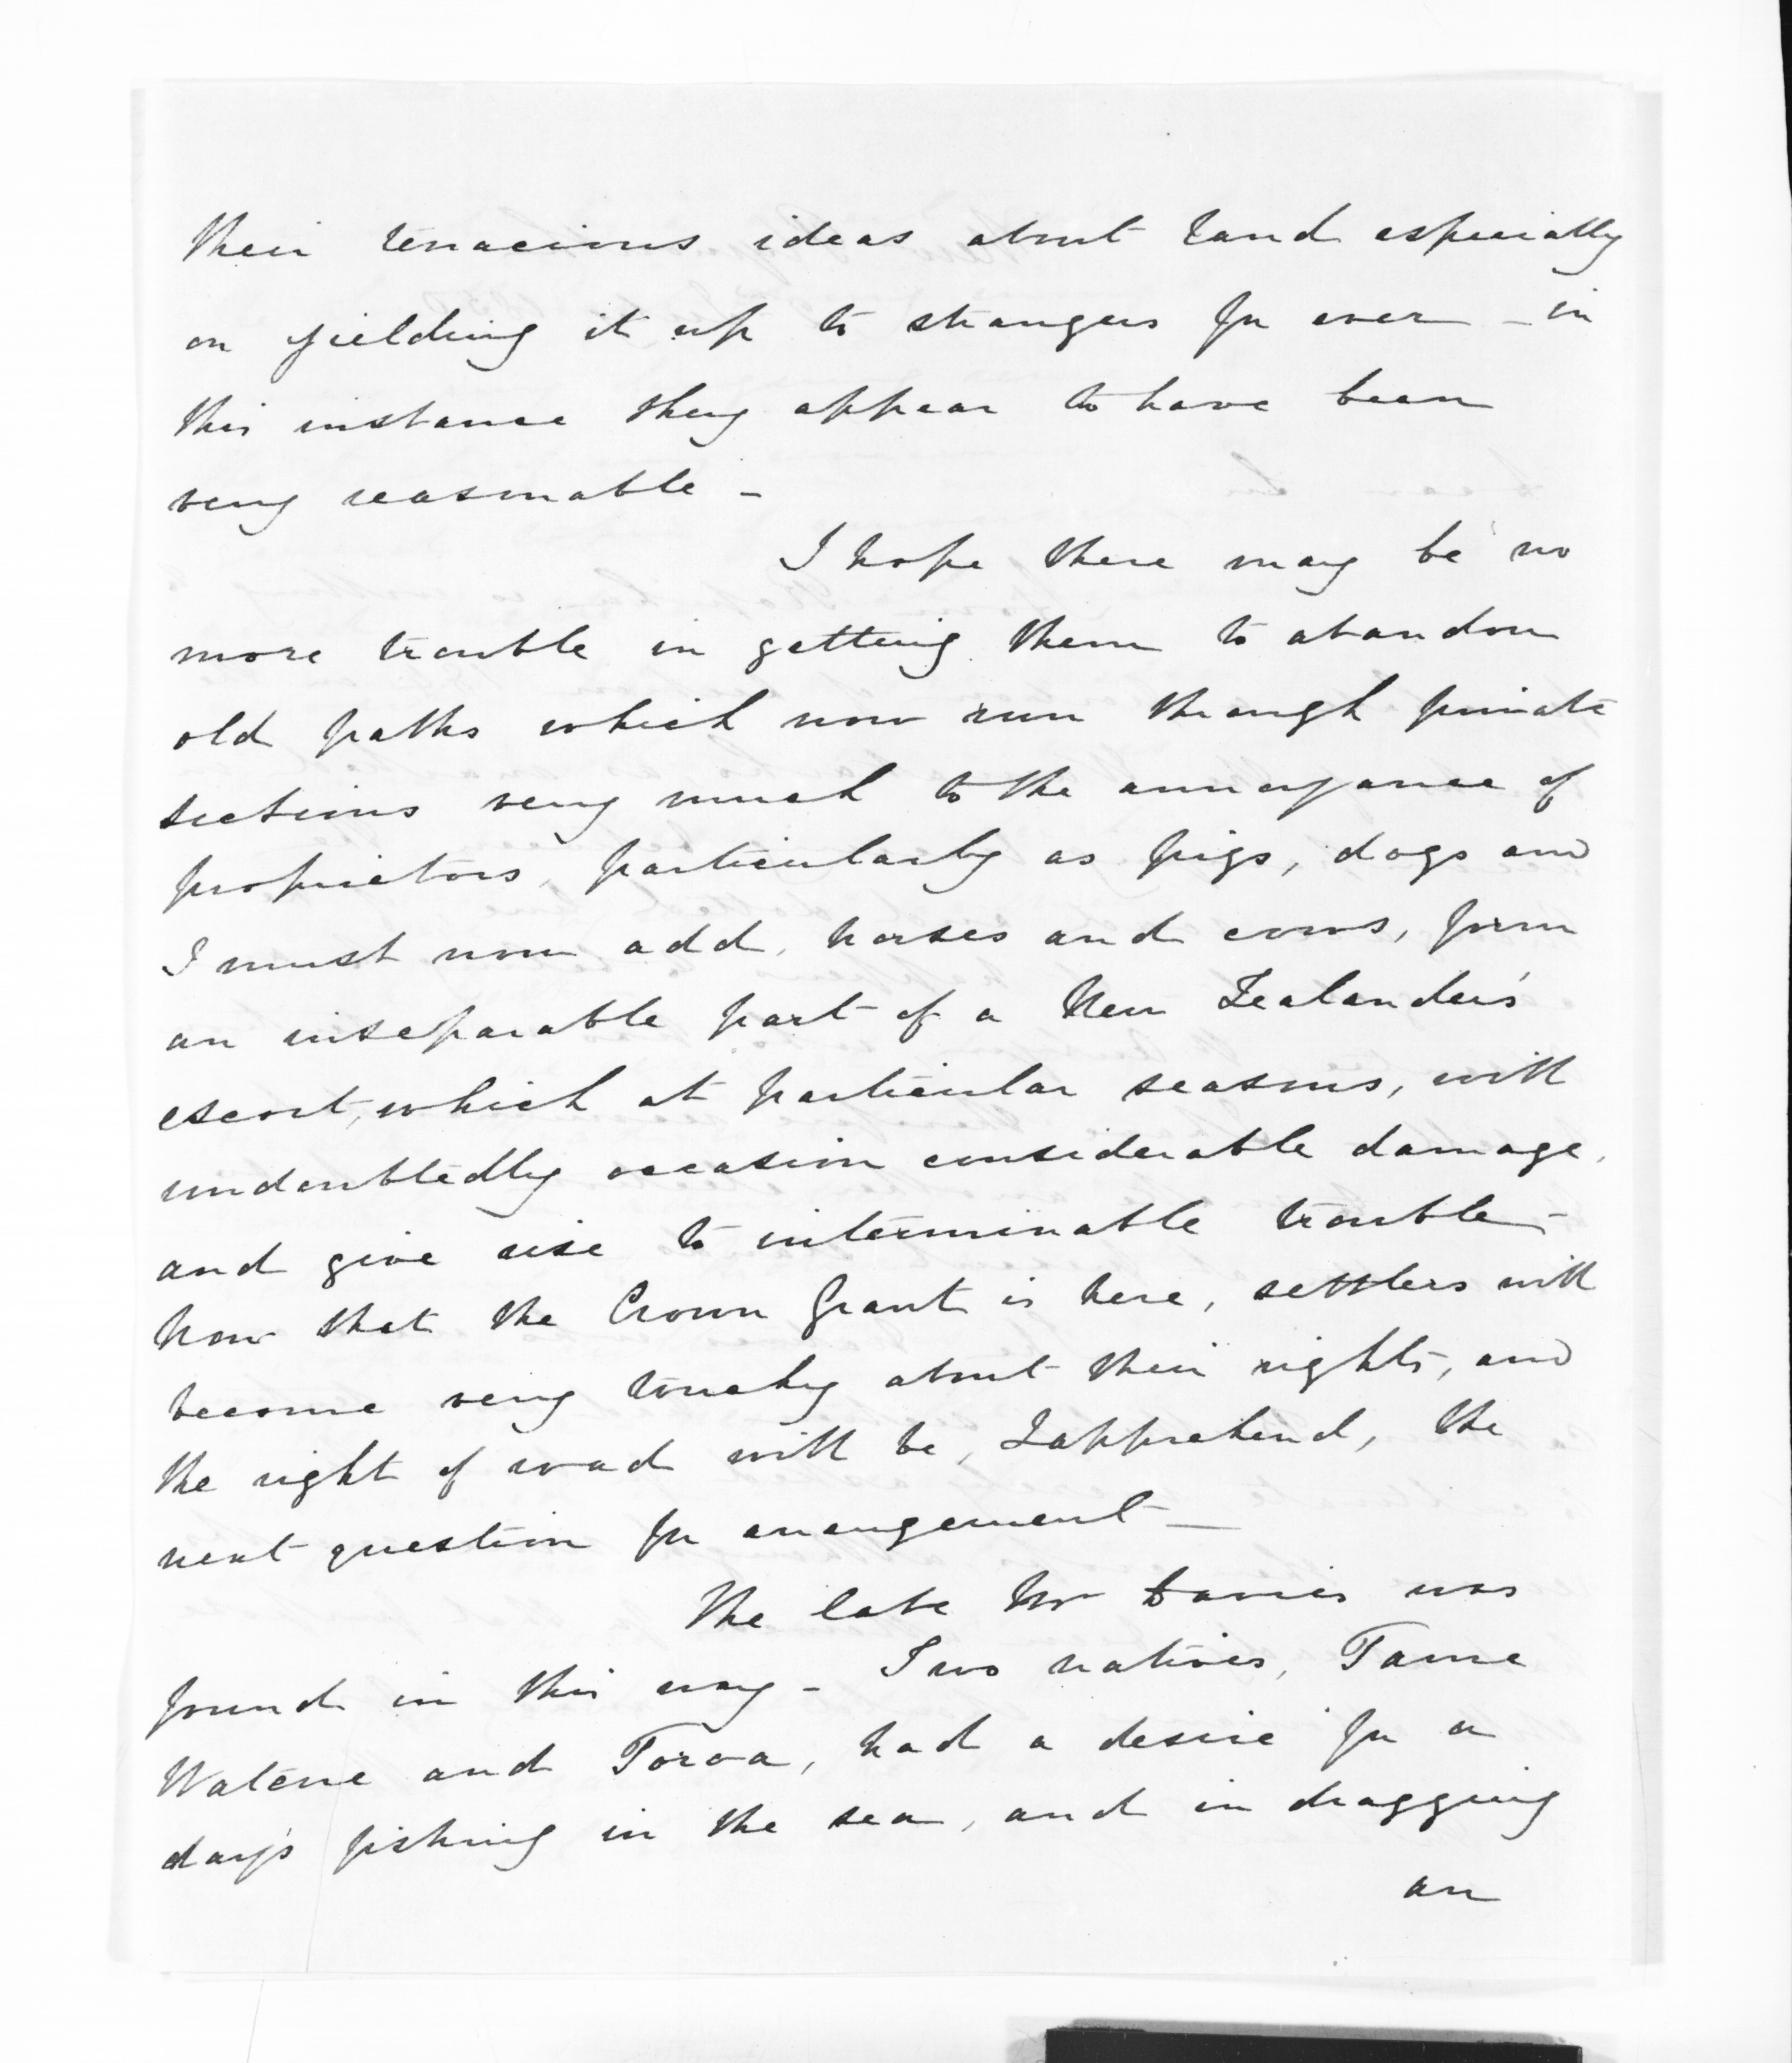 their tenacious ideas about land especially
on yielding it up to strangers for ever - in
this instance they appear to have been
very reasonable -
I hope there may be no
more trouble in getting them to abandon
old paths which now run through private
sections very much to the annoyance of
proprietors, particularly as pigs, dogs and
I must now add, horses and cows, form
an inseparable part of a New Zealander's
escort, which at particular seasons, will
undoubtedly occasion considerable damage,
and give rise to interminable trouble -
Now that the Crown Grant is here, settlers will
become very touchy about their rights, and
the right of road will be, I apprehend, the
next question for arrangement -
The late Mr Davies was
found in this way - Two natives, Tame
Watene and Toroa, had a desire for a
day's fishing in the sea, and in dragging
an